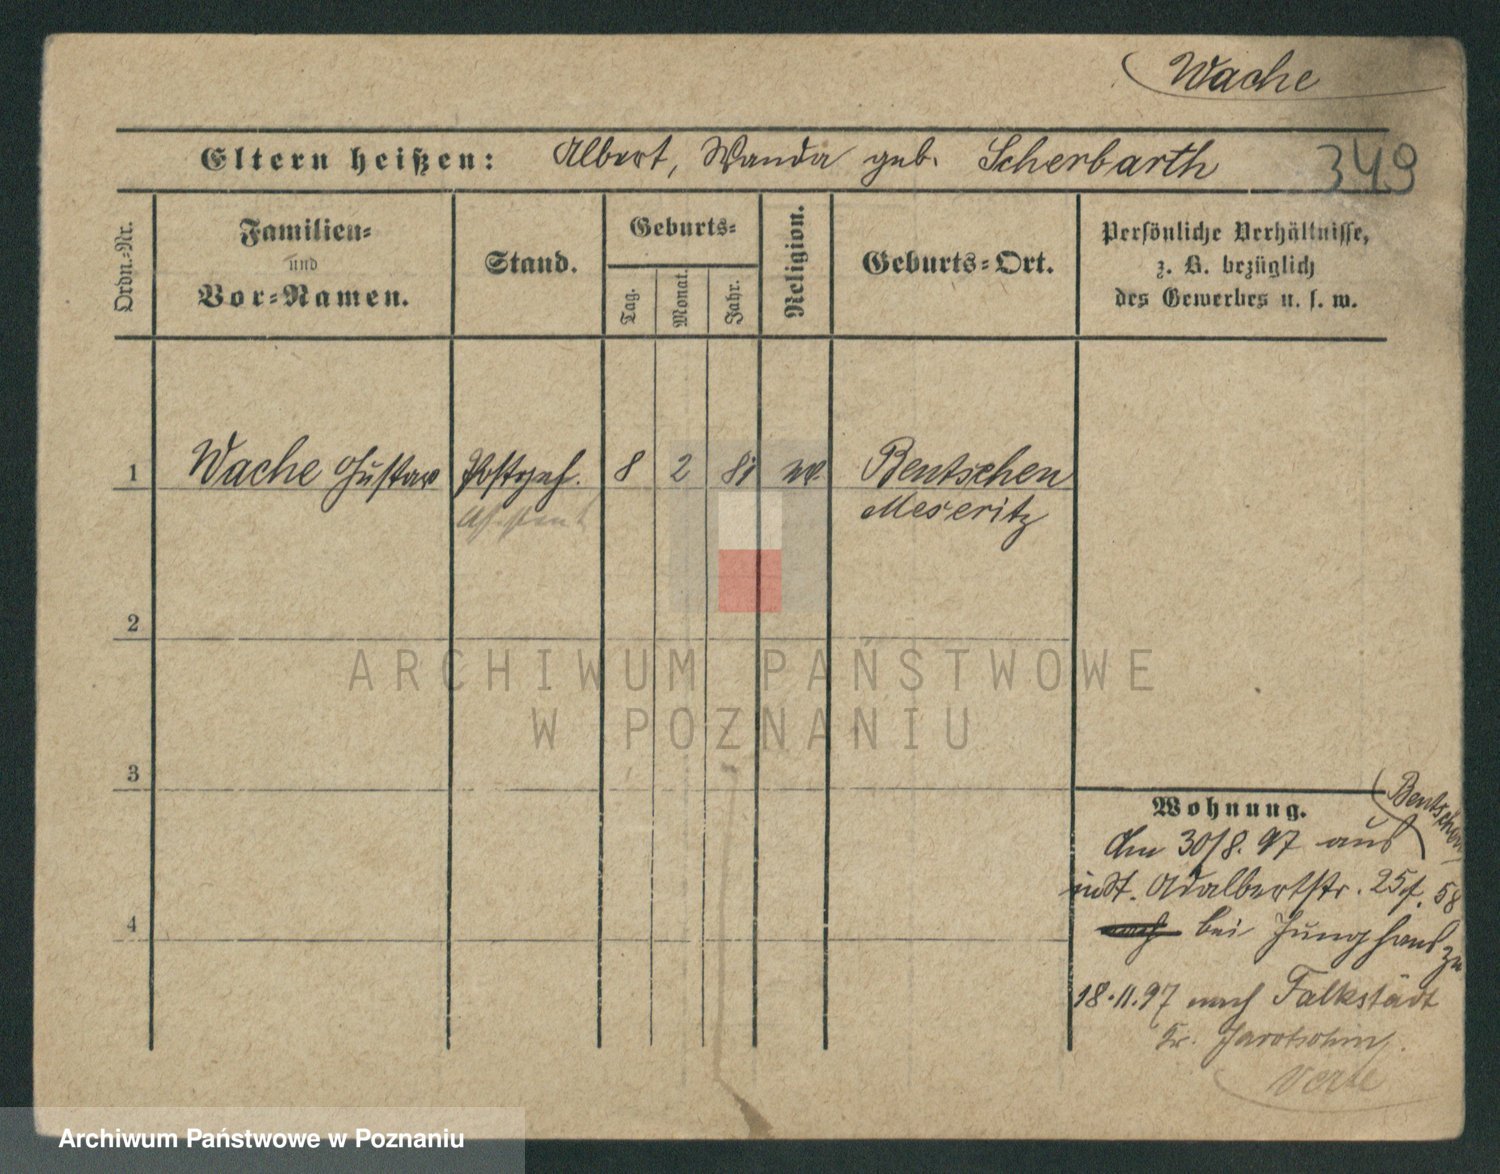 Wache
Eltern heißen: Albert, Wanda geb. Scherbarth
349
Ordn.-Nr.
Familien-
und
Vor-Namen.
Stand.
Geburts-
Tag.
Monat.
Jahr.
Religion.
Geburts-Ort.
Persönliche Verhältnisse,
z. B. bezüglich
des Gewerbes u. s. w.
1 Wache Gustav Postgeh. 8 2 81 Bentschen
Assistent Meseritz
2
ARCHIWUM PAŃSTWOWE
W POZNANIU
3
Wohnung.
Am 30/8. 97 aus Bentschen
in St. Adalbertstr. 25 58
4
bei Junghans zu
18.11.97 nach Falkstädt
Kr. Jarotschin
Verte
Archiwum Państwowe w Poznaniu